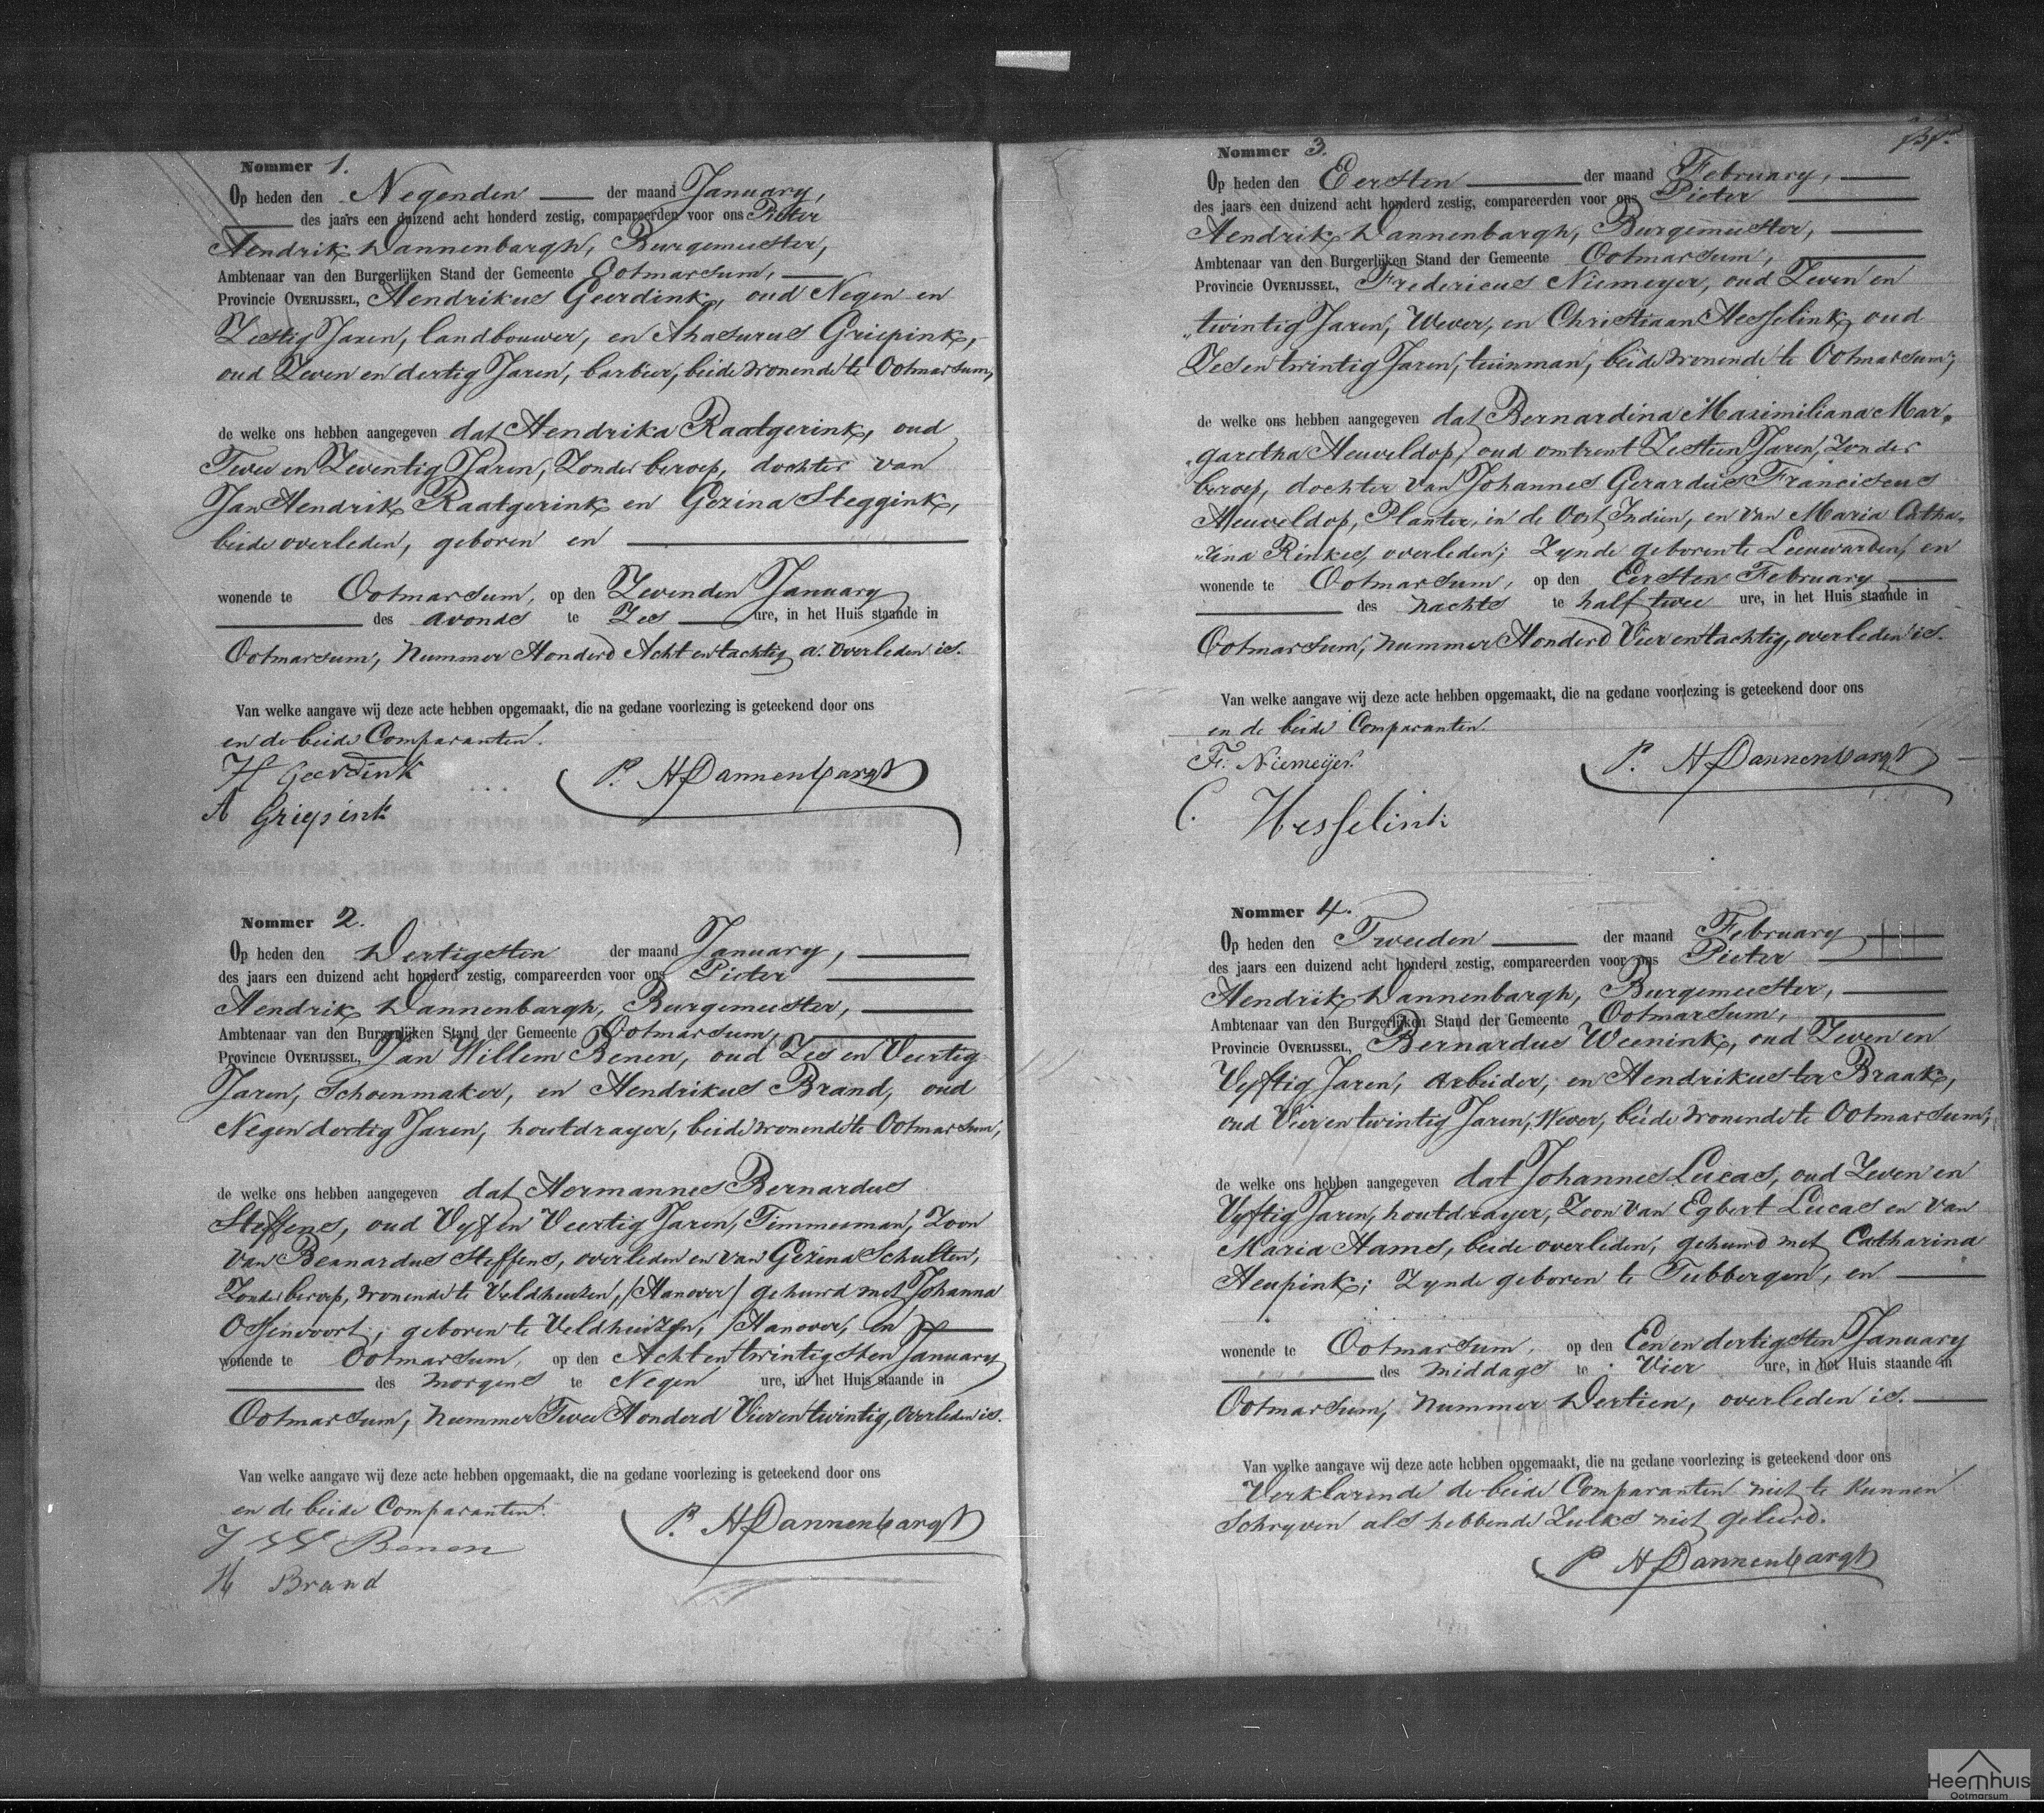 Nommer 1.
Op heden den Negenden der maand January,
des jaars een duizend acht honderd zestig, compareerden voor ons Pieter
Hendrik Dannenbargh, Burgemeester,
Ambtenaar van den Burgerlijken Stand der Gemeente Ootmarsum,
Provincie OVERIJSSEL, Hendrikus Geerdink, oud Negen en
Zestig Jaren, landbouwer, en Ahasurus Griepink,
oud Zeven en dertig Jaren, barbier, beide wonende te Ootmarsum,
de welke ons hebben aangegeven dat Hendrika Raatgerink, oud
Twee en Zeventig Jaren, Zonder beroep, dochter van
Jan Hendrik Raatgerink en Gezina Steggink,
beide overleden, geboren en
wonende te Ootmarsum, op den Zevenden January
des avonds te Zes ure, in het Huis staande in
Ootmarsum, nummer Honderd Acht en tachtig a. overleden is.
Van welke aangave wij deze acte hebben opgemaakt, die na gedane voorlezing is geteekend door ons
en de beide Comparanten.
H Geerdink P. H Dannenbargh
A Griepink
Nommer 2.
Op heden den Dertigsten der maand January,
des jaars een duizend acht honderd zestig, compareerden voor ons Pieter
Hendrik Dannenbargh, Burgemeester,
Ambtenaar van den Burgerlijken Stand der Gemeente Ootmarsum,
Provincie OVERIJSSEL, Jan Willem Benen, oud Zes en Veertig
Jaren, Schoenmaker, en Hendrikus Brand, oud
Negen dertig Jaren, houtdrayer, beide wonende te Ootmarsum,
de welke ons hebben aangegeven dat Hermannes Bernardus
Steffens, oud Vyf en Veertig Jaren, Timmerman, Zoon
van Bernardus Steffens, overleden en van Gezina Schulten,
Zonder beroep, wonende te Veldhuizen, /Hanover/ gehuwd met Johanna
Ossenvoort; geboren te Veldhuizen, /Hanover, en
wonende te Ootmarsum, op den Acht en twintigsten January
des morgens te Negen ure, in het Huis staande in
Ootmarsum, nummer Twee Honderd Vier en twintig, overleden is.
Van welke aangave wij deze acte hebben opgemaakt, die na gedane voorlezing is geteekend door ons
en de beide Comparanten.
J W Benen P. H Dannenbargh
H Brand
Nommer 3.
Op heden den Eersten der maand February,
des jaars een duizend acht honderd zestig, compareerden voor ons Pieter
Hendrik Dannenbargh, Burgemeester,
Ambtenaar van den Burgerlijken Stand der Gemeente Ootmarsum,
Provincie OVERIJSSEL, Fredericus Niemeyer, oud Zeven en
twintig Jaren, Wever, en Christiaan Hesselink, oud
Zes en twintig Jaren, tuinman, beide wonende te Ootmarsum,
de welke ons hebben aangegeven dat Bernardina Maximiliana Mar-
garetha Heuveldop, oud omtrent Zestien Jaren, Zonder
beroep, dochter van Johannes Gerardus Franciscus
Heuveldop, Planter, in de Oost Indien, en van Maria Catha-
rina Rinkes, overleden; Zynde geboren te Leeuwarden, en
wonende te Ootmarsum, op den Eersten February
des nachts te half twee ure, in het Huis staande in
Ootmarsum, nummer Honderd Vier en tachtig, overleden is.
Van welke aangave wij deze acte hebben opgemaakt, die na gedane voorlezing is geteekend door ons
en de beide Comparanten.
Fr. Niemeijer. P. H Dannenbargh
C. Hesselink
Nommer 4.
Op heden den Tweeden der maand February
des jaars een duizend acht honderd zestig, compareerden voor ons Pieter
Hendrik Dannenbargh, Burgemeester,
Ambtenaar van den Burgerlijken Stand der Gemeente Ootmarsum,
Provincie OVERIJSSEL, Bernardus Weenink, oud Zeven en
Vyftig Jaren, arbeider, en Hendrikus ter Braak,
oud Vier en twintig Jaren, Wever, beide wonende te Ootmarsum,
de welke ons hebben aangegeven dat Johannes Lucas, oud Zeven en
Vyftig Jaren, houtdrayer, Zoon van Egbert Lucas en van
Maria Hames, beide overleden, gehuwd met Catharina
Heupink; Zynde geboren te Tubbergen, en
wonende te Ootmarsum, op den Een en dertigsten January
des middags te Vier ure, in het Huis staande in
Ootmarsum, nummer Dertien, overleden is.
Van welke aangave wij deze acte hebben opgemaakt, die na gedane voorlezing is geteekend door ons
Verklarende de beide Comparanten niet te kunnen
Schryven als hebbende Zulks niet geleerd.
P H Dannenbargh
Heemhuis
Ootmarsum